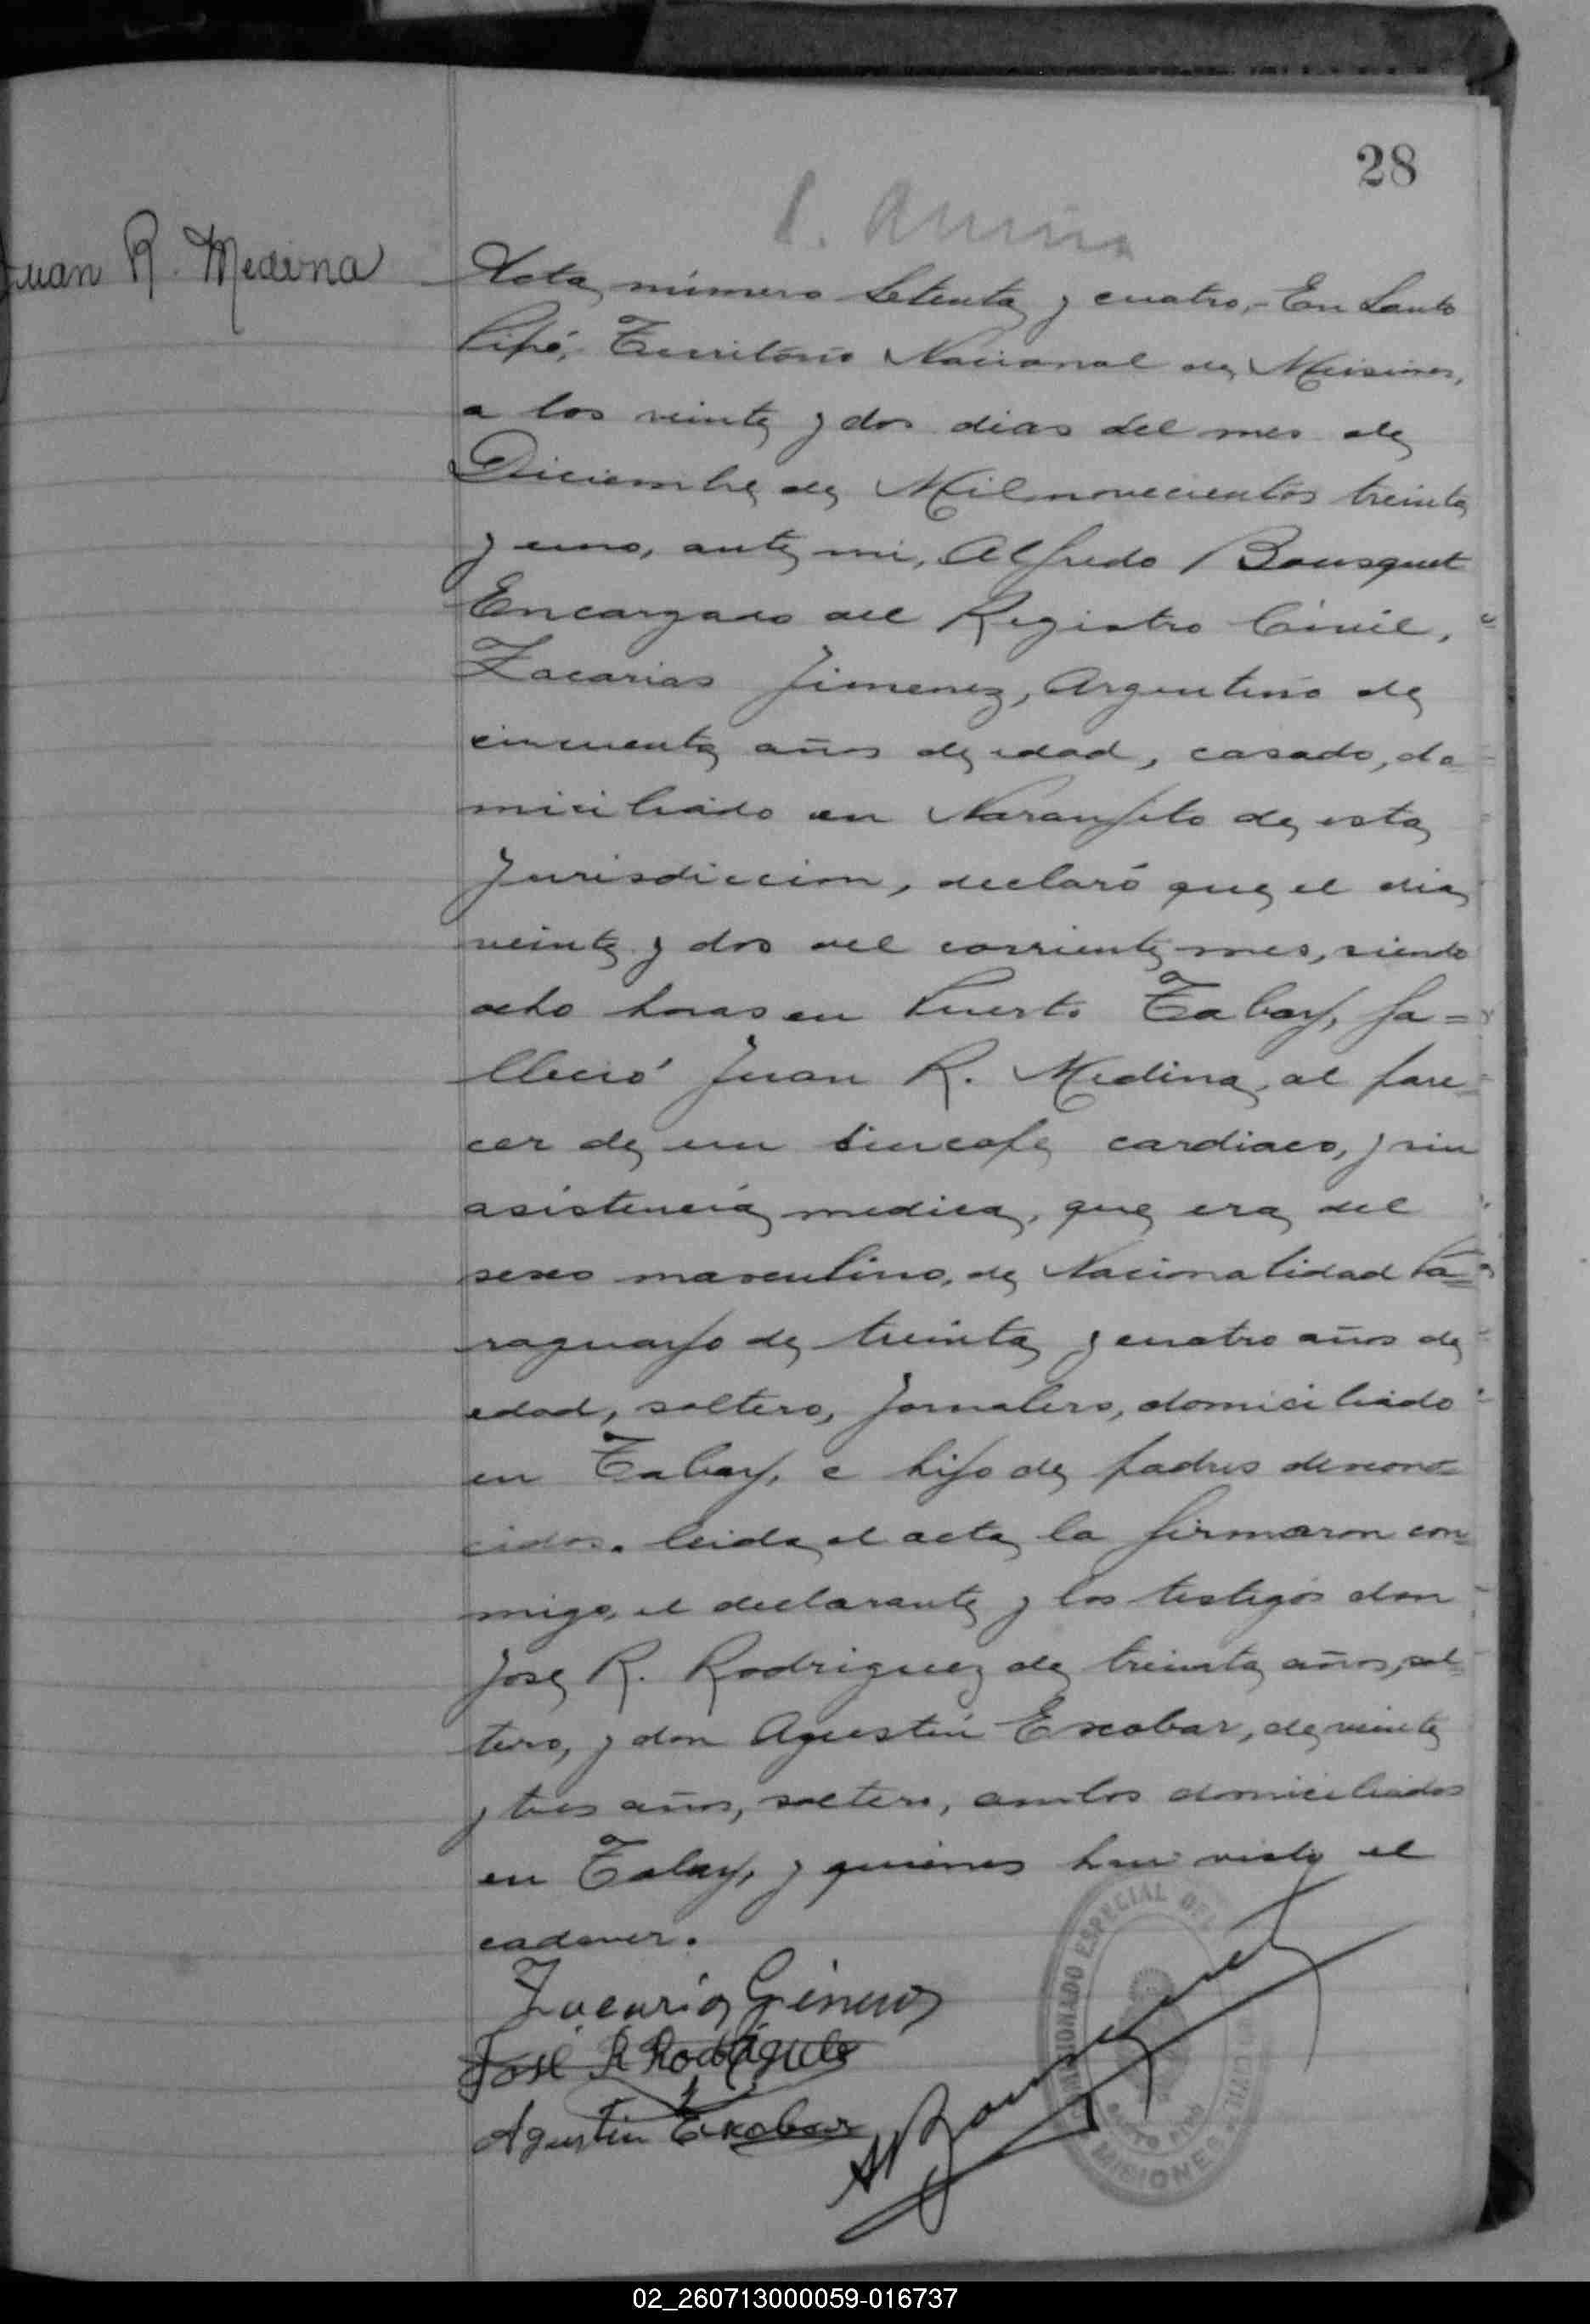 28
Juan R. Medina
Acta número Setenta y cuatro,- En Santo
Pipó, Territorio Nacional de Misiones,
a los veinte y dos dias del mes de
Diciembre de Mil novecientos treinta
y uno, ante mi, Alfredo Bousquet
Encargado del Registro Civil,
Zacarias Jimenez, Argentino de
cincuenta años de edad, casado, do
miciliado en Naranjito de esta
Jurisdiccion, declaró que el dia
veinte y dos del corriente mes, siendo
ocho horas en Puerto Tabay, fa=
lleció Juan R. Medina, al pare=
cer de un sincope cardiaco, y sin
asistencia medica, que era del
sexo masculino, de Nacionalidad Pa=
raguayo de treinta y cuatro años de
edad, soltero, Jornalero, domiciliado
en Tabay, e hijo de padres descono=
cidos. leida el acta, la firmaron con=
migo, el declarante y los testigos don
Jose R. Rodriguez de treinta años, sol=
tero, y don Agustin Escobar, de veinte
y tres años, soltero, ambos domiciliados
en Tabay, y quienes han visto el
cadaver.
Zacarias Gimenez
José R Rodriguez
Agustin Escobar
A Bousquet
COMISIONADO ESPECIAL DEL REGISTRO CIVIL
SANTO PIPÓ
MISIONES
02_260713000059-016737